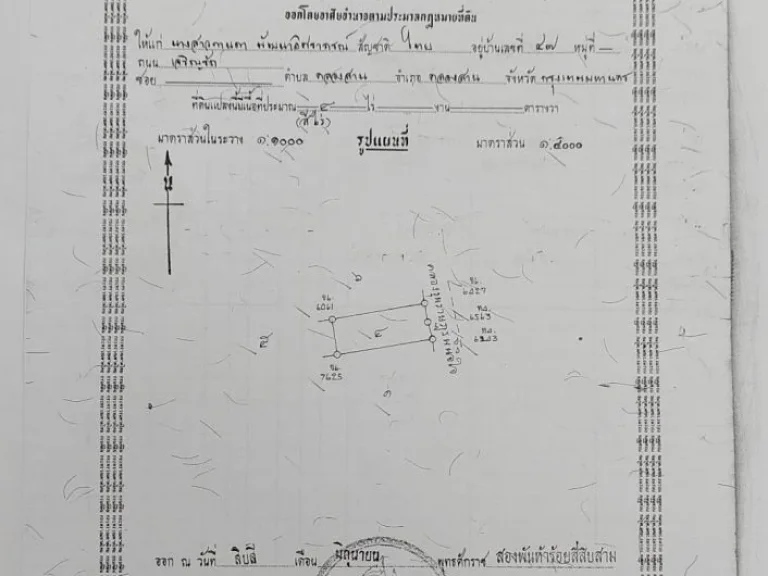 ออกโดยอาศัยอำนาจตามประมวลกฎหมายที่ดิน
ให้แก่ นางสาว สัญชาติ ไทย อยู่บ้านเลขที่ ๔๗ หมู่ที่ —
ถนน เจริญรัถ
ซอย ตำบล คลองสาน อำเภอ คลองสาน จังหวัด กรุงเทพมหานคร
ที่ดินแปลงนี้มีเนื้อที่ประมาณ ๔ ไร่ งาน ตารางวา
(สี่ไร่)
มาตราส่วนในระวาง ๑:๑๐๐๐ รูปแผนที่ มาตราส่วน ๑:๔๐๐๐
น
6061
6027
6563
7625
ออก ณ วันที่ สิบสี่ เดือน มิถุนายน พุทธศักราช สองพันห้าร้อยสี่สิบสาม